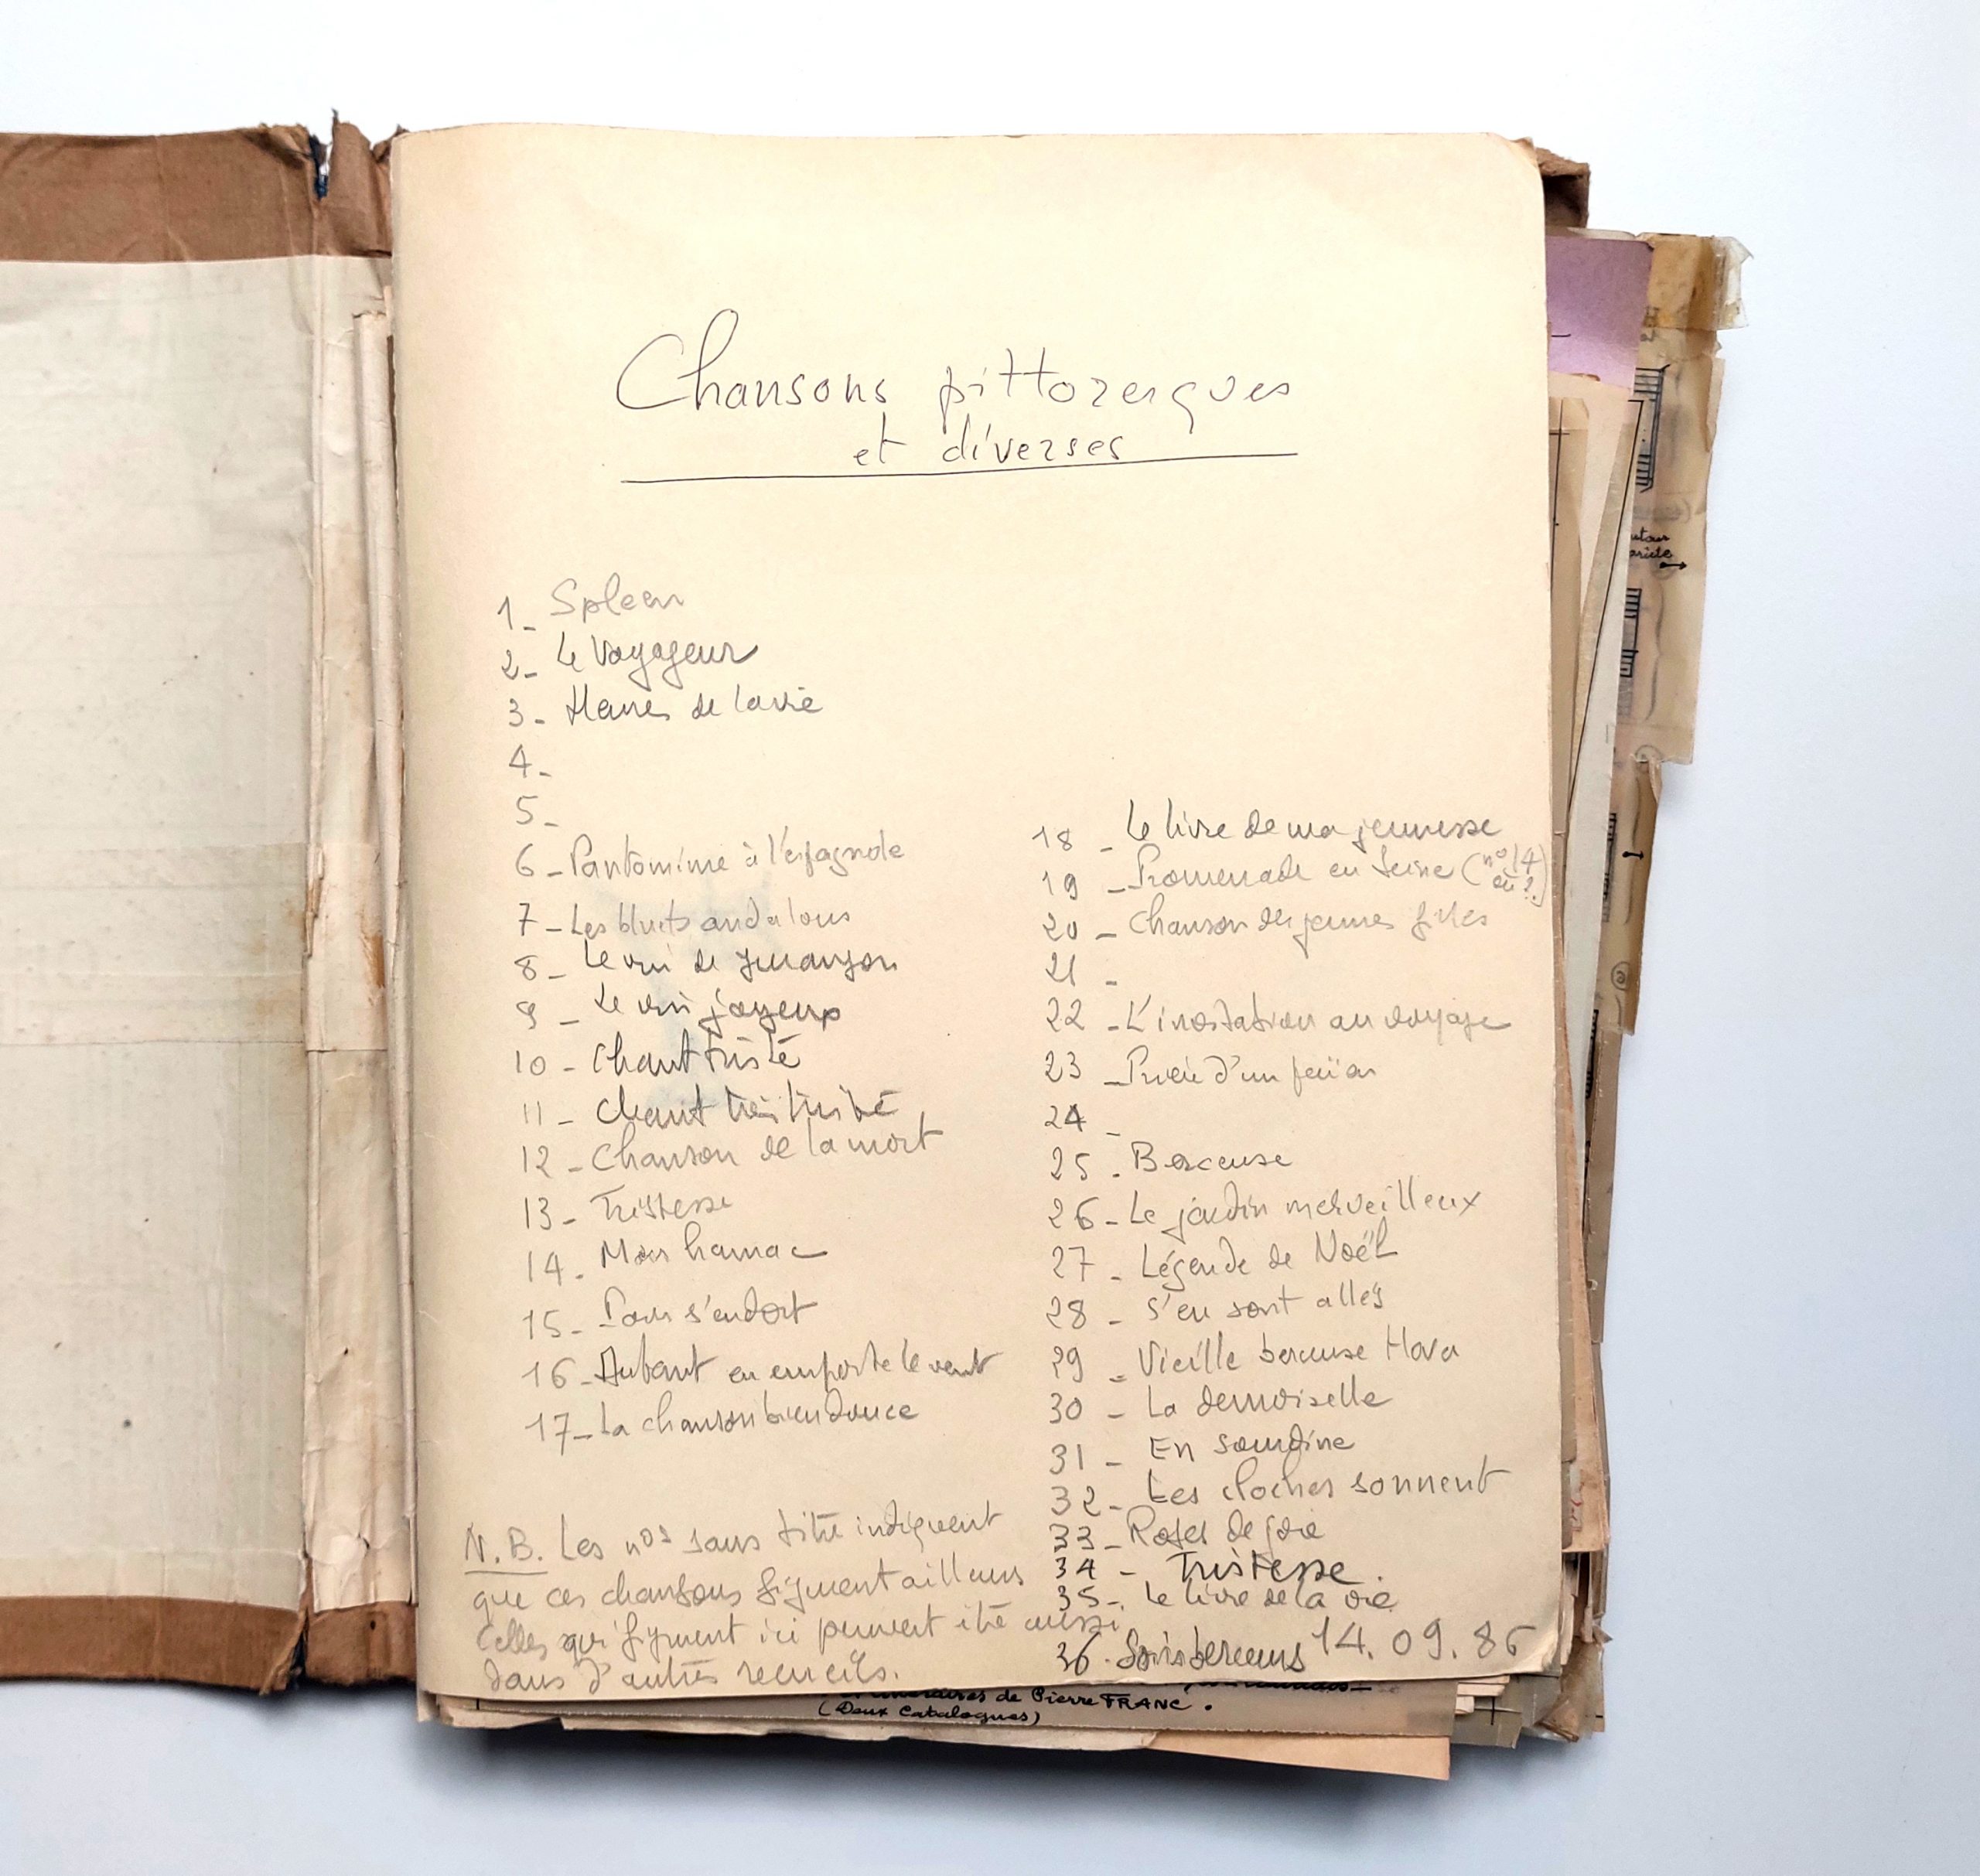 Chansons pittoresques
et diverses
1_ Spleen
2_ Le Voyageur
3_ Heures de la vie
4_
5_
6_ Pantomime à l'espagnole
7_ Les bluets andalous
8_ Le vin de Jurançon
9_ Le vin joyeux
10_ Chant triste
11_ Chant très triste
12_ Chanson de la mort
13_ Tristesse
14_ Mon hamac
15_ s'endort
16_ Autant en emporte le vent
17_ La chanson bien douce
18_ Le livre de ma jeunesse
19_ Promenade en Seine (n° 14 ou ?)
20_ Chanson des jeunes filles
21_
22_ L'invitation au voyage
23_ Prière d'un
24_
25_ Berceuse
26_ Le jardin merveilleux
27_ Légende de Noël
28_ S'en sont allés
29_ Vieille berceuse Hova
30_ La demoiselle
31_ En sourdine
32_ Les cloches sonnent
33_ Roses de joie
34_ Tristesse.
35_ Le livre de la vie
36. Soirs berceurs
14.09.86
N.B. Les nos sans titre indiquent
que ces chansons figurent ailleurs
Celles qui figurent ici peuvent être aussi
dans d'autres recueils.
de Pierre FRANC.
(Deux Catalogues)